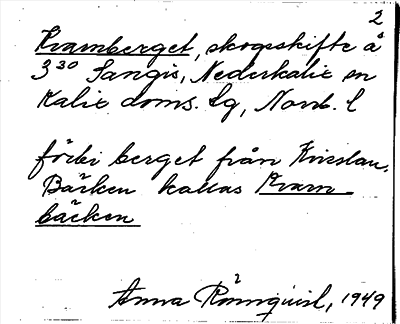 2
Kvarnberget, skogsskifte å
3³⁰ Sangis, Nederkalix sn
Kalix doms. lg, Norrb. l
förbi berget från
Bäcken kallas Kvarn-
bäcken
Anna Rönnquist, 1949